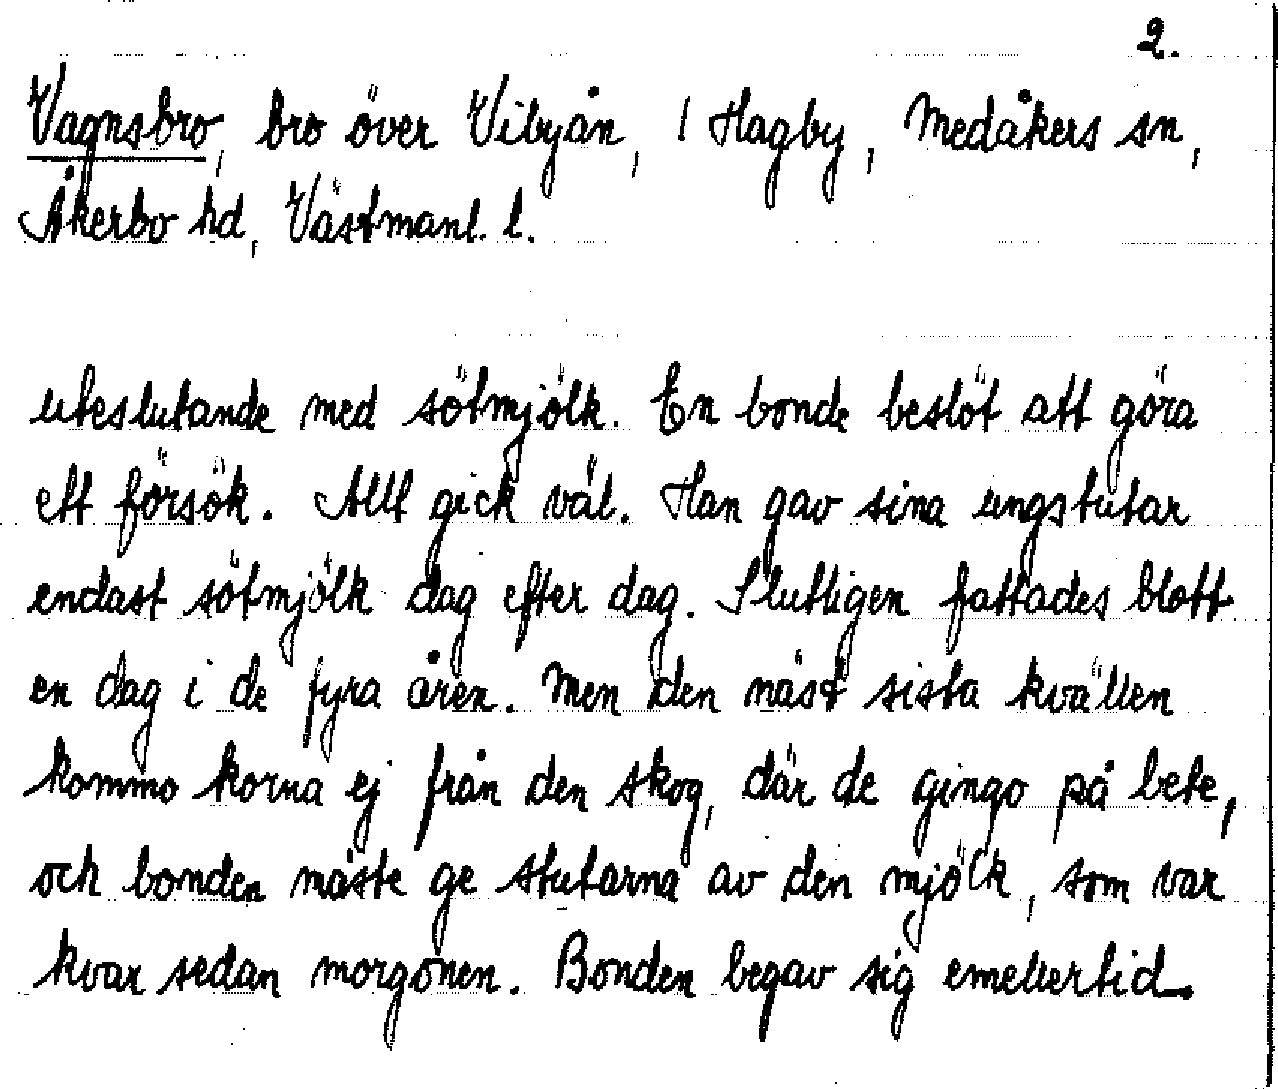 2.
Vagnsbro, bro över Vibyån, / Hagby, Medåkers sn,
Åkerbo hd, Västmanl. l.
uteslutande med sötmjölk. En bonde beslöt att göra
ett försök. Allt gick väl. Han gav sina ungstutar
endast sötmjölk dag efter dag. Slutligen fattades blott
en dag i de fyra åren. Men den näst sista kvällen
kommo korna ej från den skog, där de gingo på bete,
och bonden måste ge stutarna av den mjölk, som var
kvar sedan morgonen. Bonden begav sig emellertid